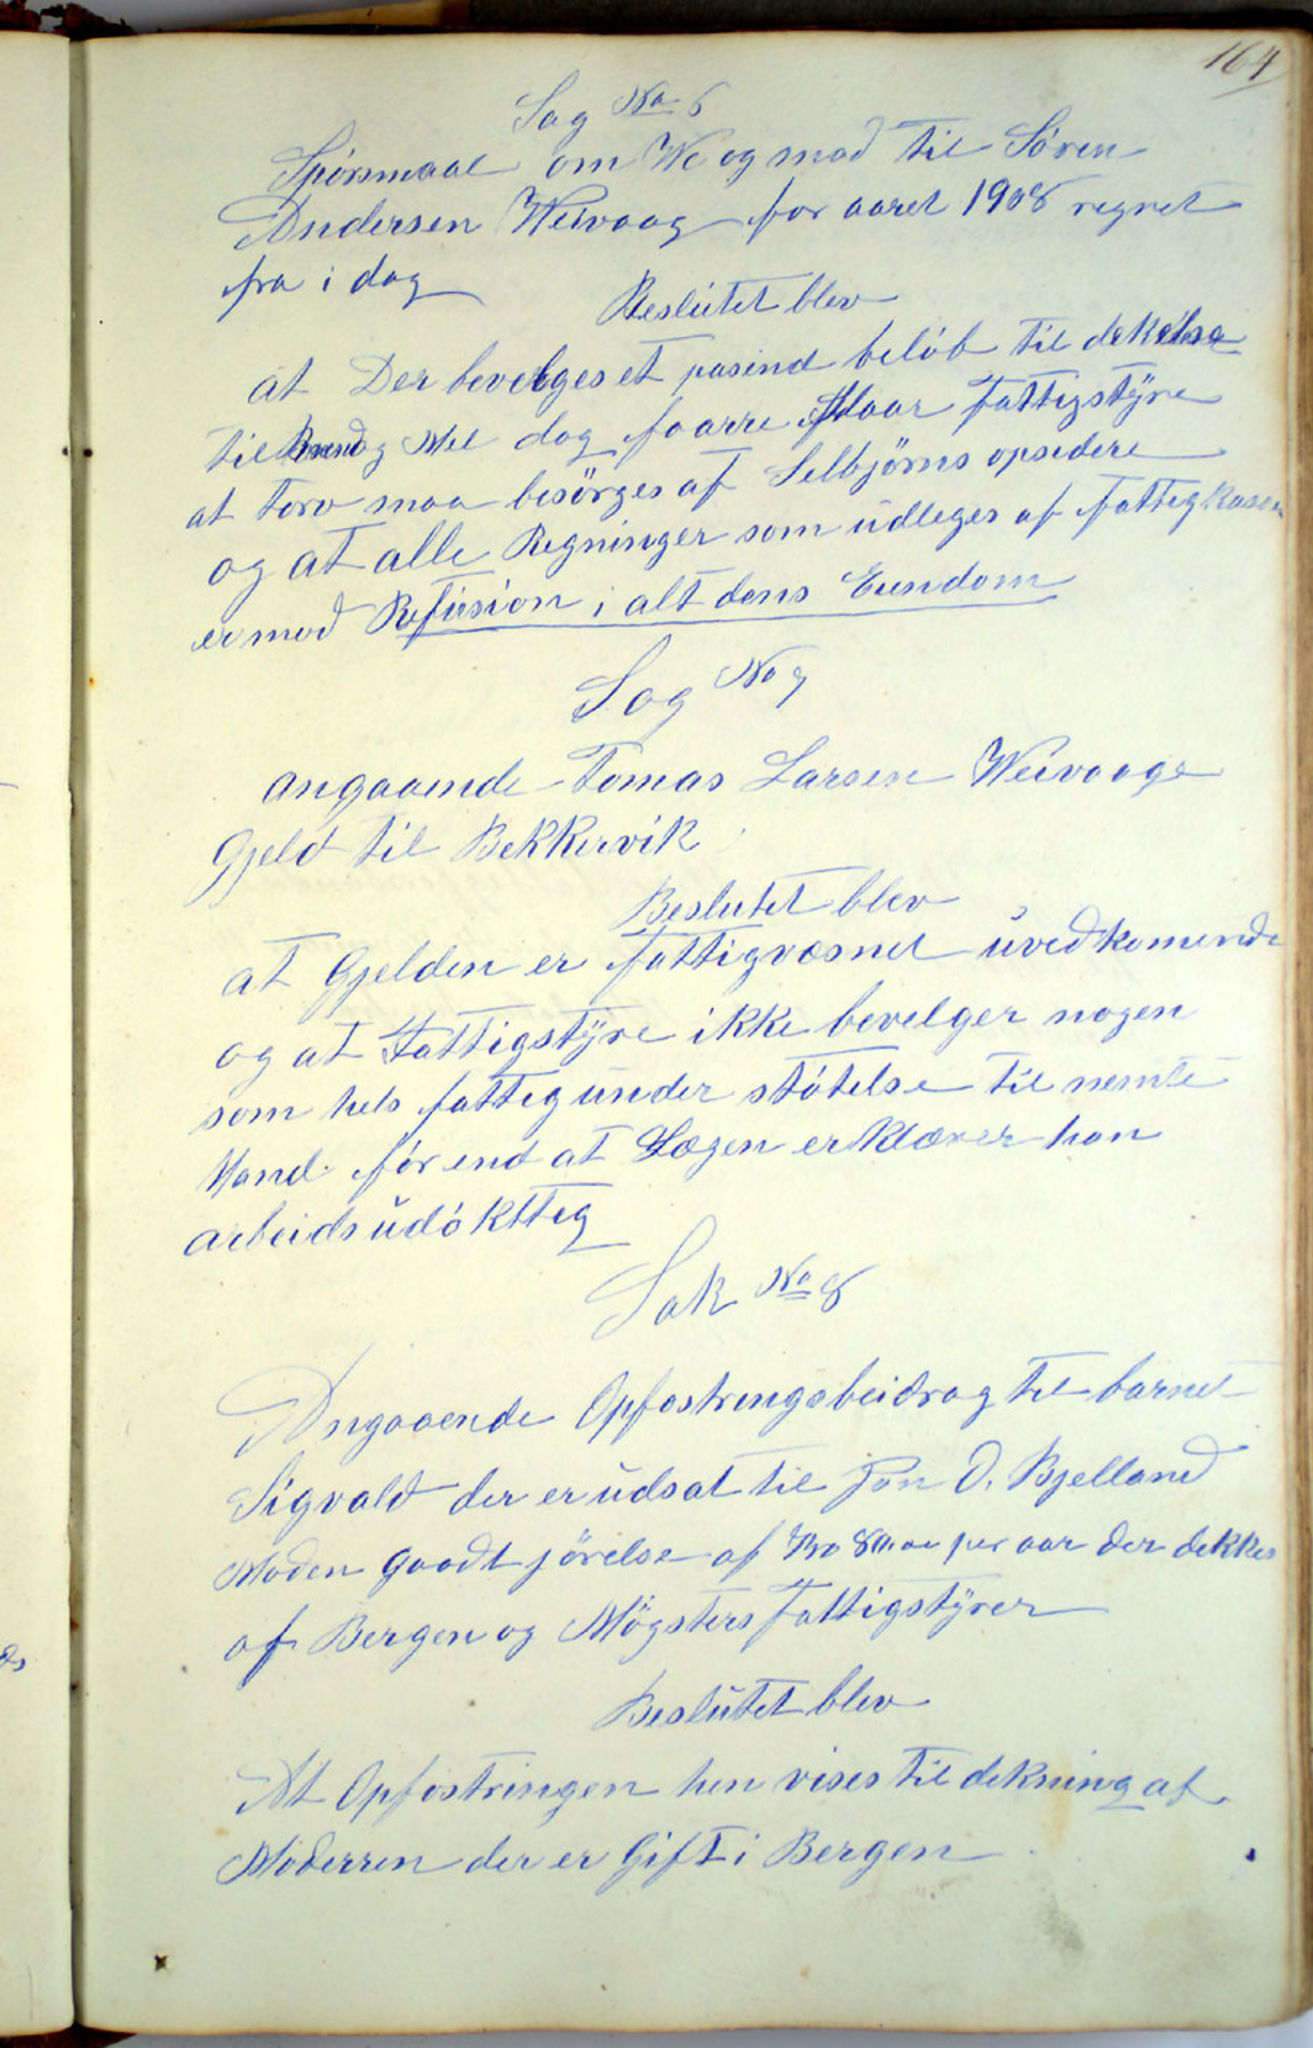 164
Sag No 6
Spörsmaal om We og mad til Sören
Andersen Weivaag for aaret 1908 regnet
fra i dag
Beslutet blev
at Der bevelges et pasend belöb til dekelse
til og Mel dog faarre Maar fattigstyre
at torv maa besörges af Selbjörns opsidere
og at alle Regninger som udleges af fattigkasen
er mod Refusion i alt dens Eiendom
Sag No 7
angaaende Tomas Larsen Weivaage
Gjeld til Bekkervik
Beslutet blev
at Gjelden er fattigvæsnet uvedkomende
og at Fattigstyre ikke bevelger nogen
som hels fattig under stötelse til nemte
Mand. för end at Lægen erklærer han
arbeids udökttig
Sak No 8
Angaaende Opfostrengsbeidrag til barnet
Sigvald der er udsat til Jon O. Bjelland
Moden gaadt jörelse af Kro 80.00 per aar der dekkes
af Bergen og Mögsters Fattigstyrer
Beslutet blev
At Opfostringen hen vises til dekning af
Moderren der er Gift i Bergen